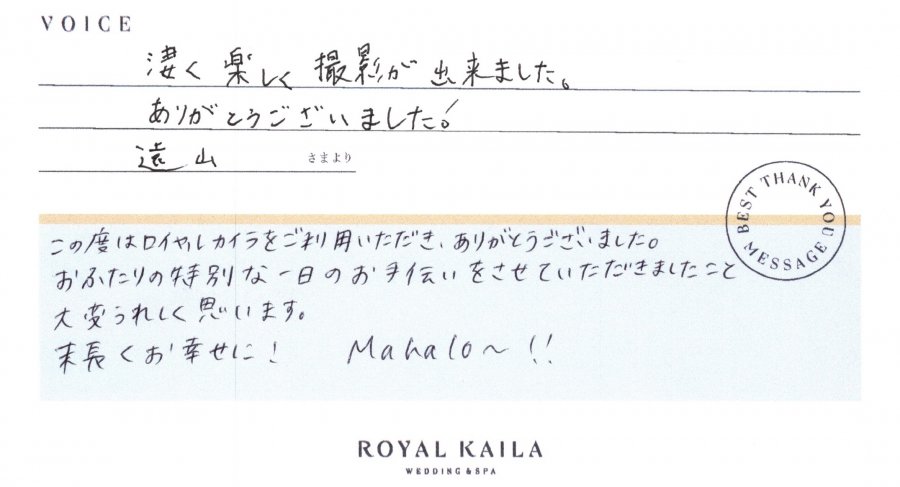 VOICE
凄く楽しく撮影が出来ました。
ありがとうございました!
遠山 さまより
BEST THANK YOU MESSAGE
この度はロイヤルカイラをご利用いただき、ありがとうございました。
おふたりの特別な一日のお手伝いをさせていただきましたこと
大変うれしく思います。
末長くお幸せに! Mahalo〜!!
ROYAL KAILA
WEDDING & SPA